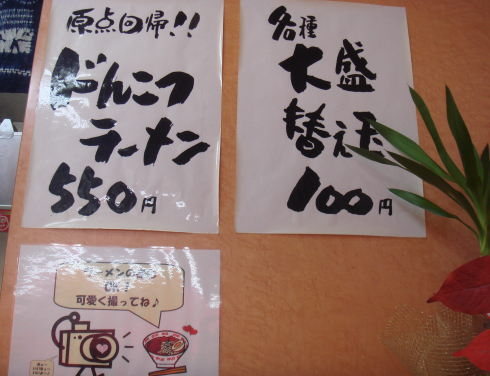 原点回帰!!
どんこつ
ラーメン
550円
各種
大盛
替え玉
100円
ラーメンの
OK!
可愛く撮ってね♪